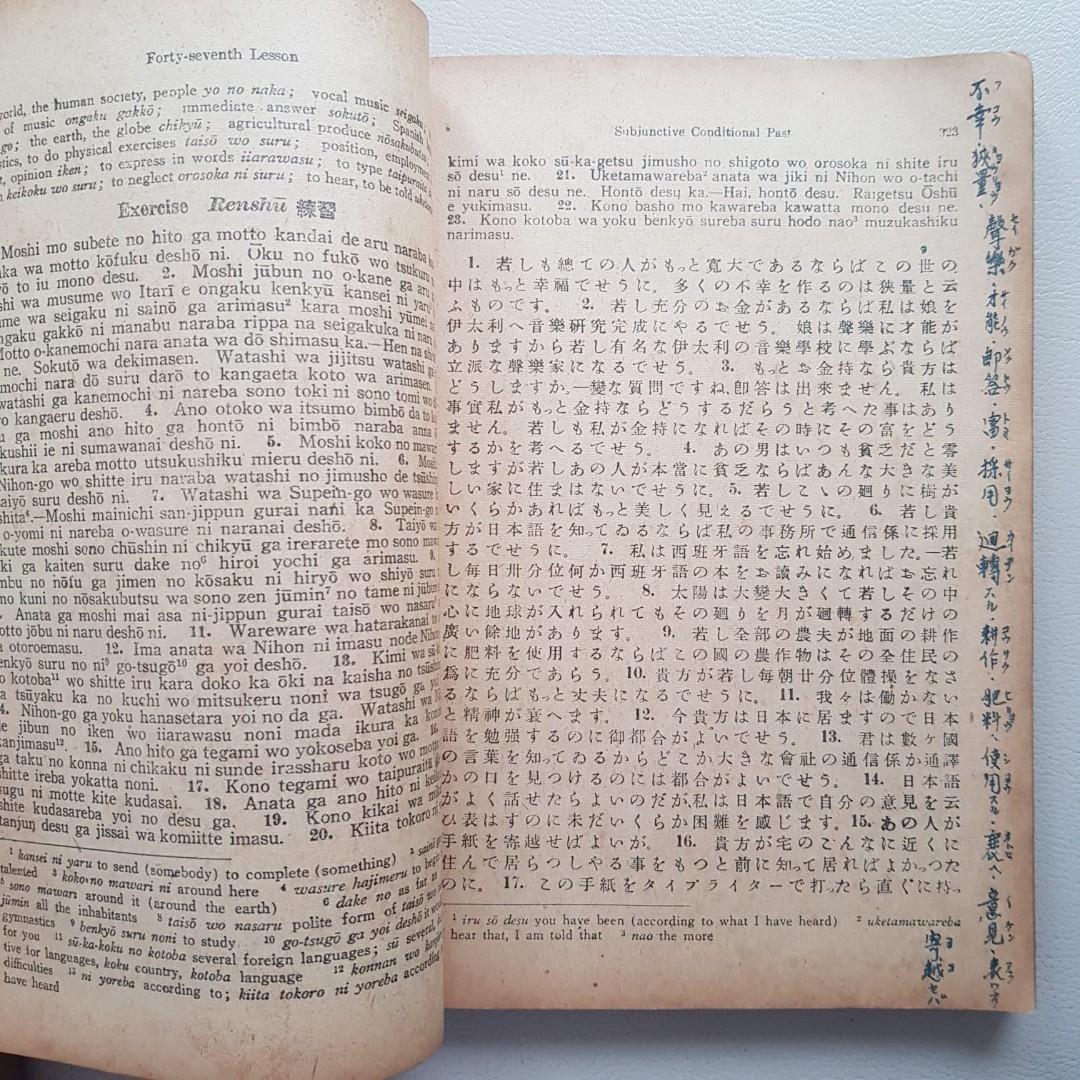 Forty-seventh Lesson
world, the human society, people yo no naka; vocal music seigaku;
of music ongaku gakkō; immediate answer sokutō; Spanish
go; the earth, the globe chikyū; agricultural produce nōsakubutsu;
stics, to do physical exercises taisō wo suru; position, employment
t, opinion iken; to express in words iiarawasu; to type taipuraitā
n keikoku wo suru; to neglect orosoka ni suru; to hear, to be told
Exercise Renshū 練習
Moshi mo subete no hito ga motto kandai de aru naraba
ka wa motto kōfuku deshō ni. Ōku no fukō wo tsukuru
ō to iu mono desu. 2. Moshi jūbun no o-kane ga aru
shi wa musume wo Itarī e ongaku kenkyū kansei ni yaru
ume wa seigaku ni sainō ga arimasu² kara moshi yūmei
ngaku gakkō ni manabu naraba rippa na seigakuka ni naru
Motto o-kanemochi nara anata wa dō shimasu ka.—Hen na
ne. Sokutō wa dekimasen. Watashi wa jijitsu watashi ga
mochi nara dō suru darō to kangaeta koto wa arimasen.
watashi ga kanemochi ni nareba sono toki ni sono tomi wo
ro kangaeru deshō. 4. Ano otoko wa itsumo bimbō da to
u ga moshi ano hito ga hontō ni bimbō naraba anna
kushii ie ni sumawanai deshō ni. 5. Moshi koko no mawari
kura ka areba motto utsukushiku mieru deshō ni. 6. Moshi
Nihon-go wo shitte iru naraba watashi no jimusho de tsūshin
taiyō suru deshō ni. 7. Watashi wa Supein-go wo wasure
shita⁴.—Moshi mainichi san-jippun gurai nani ka Supein-go
o-yomi ni nareba o-wasure ni naranai deshō. 8. Taiyō wa
kute moshi sono chūshin ni chikyū ga irerarete mo sono
ki ga kaiten suru dake no⁶ hiroi yochi ga arimasu. 9.
mbu no nōfu ga jimen no kōsaku ni hiryō wo shiyō suru
no kuni no nōsakubutsu wa sono zen jūmin⁷ no tame ni jūbun
Anata ga moshi mai asa ni-jippun gurai taisō wo nasaru
otto jōbu ni naru deshō ni. 11. Wareware wa hatarakanai to
a otoroemasu. 12. Ima anata wa Nihon ni imasu node Nihon
enkyō suru no ni⁹ go-tsugō¹⁰ ga yoi deshō. 13. Kimi wa
o kotoba¹¹ wo shitte iru kara doko ka ōki na kaisha no tsūshin
a tsūyaku ka no kuchi wo mitsukeru noni wa tsugō ga
4. Nihon-go ga yoku hanasetara yoi no da ga. Watashi wa
de jibun no iken wo iiarawasu noni mada ikura ka
kanjimasu¹². 15. Ano hito ga tegami wo yokoseba yoi ga.
ga taku no konna ni chikaku ni sunde irassharu koto wo motto
shitte ireba yokatta noni. 17. Kono tegami wo taipuraitā
sugu ni motte kite kudasai. 18. Anata ga ano hito ni
shite kudasareba yoi no desu ga. 19. Kono kikai wa
tanjun desu ga jissai wa komiitte imasu. 20. Kiita tokoro ni
¹ kansei ni yaru to send (somebody) to complete (something)
talented ³ koko no mawari ni around here ⁴ wasure hajimeru to begin
⁵ sono mawari around it (around the earth) ⁶ dake no as far as
jūmin all the inhabitants ⁸ taisō wo nasaru polite form of taisō wo
gymnastics ⁹ benkyō suru noni to study ¹⁰ go-tsugō ga yoi deshō it
for you ¹¹ sū-ka-koku no kotoba several foreign languages; sū several,
tive for languages, koku country, kotoba language ¹² konnan wo
difficulties ¹³ ni yoreba according to; kiita tokoro ni yoreba according
have heard
Subjunctive Conditional Past 323
kimi wa koko sū-ka-getsu jimusho no shigoto wo orosoka ni shite iru
sō desu¹ ne. 21. Uketamawareba² anata wa jiki ni Nihon wo o-tachi
ni naru sō desu ne. Hontō desu ka.—Hai, hontō desu. Raigetsu Ōshū
e yukimasu. 22. Kono basho mo kawareba kawatta mono desu ne.
23. Kono kotoba wa yoku benkyō sureba suru hodo nao³ muzukashiku
narimasu.
1. 若しも總ての人がもっと寬大であるならばこの世の
中はもっと幸福でせうに。多くの不幸を作るのは狹量と云
ふものです。 2. 若し充分のお金があるならば私は娘を
伊太利へ音樂硏究完成にやるでせう。娘は聲樂に才能が
ありますから若し有名な伊太利の音樂學校に學ぶならば
立派な聲樂家になるでせう。 3. もっとお金持なら貴方は
どうしますか。—變な質問ですね、卽答は出來ません。私は
事實私がもっと金持ならどうするだらうと考へた事はあり
ません。若しも私が金持になればその時にその富をどう
するかを考へるでせう。 4. あの男はいつも貧乏だと零
しますが若しあの人が本當に貧乏ならばあんな大きな美
しい家に住まはないでせうに。 5. 若しこゝの廻りに樹が
いくらかあればもっと美しく見えるでせうに。 6. 若し貴
方が日本語を知ってゐるならば私の事務所で通信係に採用
するでせうに。 7. 私は西班牙語を忘れ始めました。—若
し每日卅分位何か西班牙語の本をお讀みになればお忘れ
にならないでせう。 8. 太陽は大變大きくて若しその中
心に地球が入れられてもその廻りを月が廻轉するだけの
廣い餘地があります。 9. 若し全部の農夫が地面の耕作
に肥料を使用するならばこの國の農作物はその全住民の
爲に充分であらう。 10. 貴方が若し每朝廿分位體操をなさ
るならばもっと丈夫になるでせうに。 11. 我々は働かない
と精神が衰へます。 12. 今貴方は日本に居ますので日本
語を勉强するのに御都合がよいでせう。 13. 君は數ヶ國
の言葉を知ってゐるからどこか大きな會社の通信係か通譯
かの口を見つけるのには都合がよいでせう。 14. 日本語
がよく話せたらよいのだが、私は日本語で自分の意見を云
ひ表はすのに未だいくらか困難を感じます。 15. あの人が
手紙を寄越せばよいが。 16. 貴方が宅のこんなに近くに
住んで居らつしやる事をもつと前に知って居ればよかつた
のに。 17. この手紙をタイプライターで打ったら直ぐに持っ
¹ iru sō desu you have been (according to what I have heard) ² uketamawareba
hear that, I am told that ³ nao the more
不幸、狹量、聲樂、才能 卽答 富 採用 廻轉スル 耕作、肥料、使用スル、衰ヘ、意見、表ワス
寄越セバ